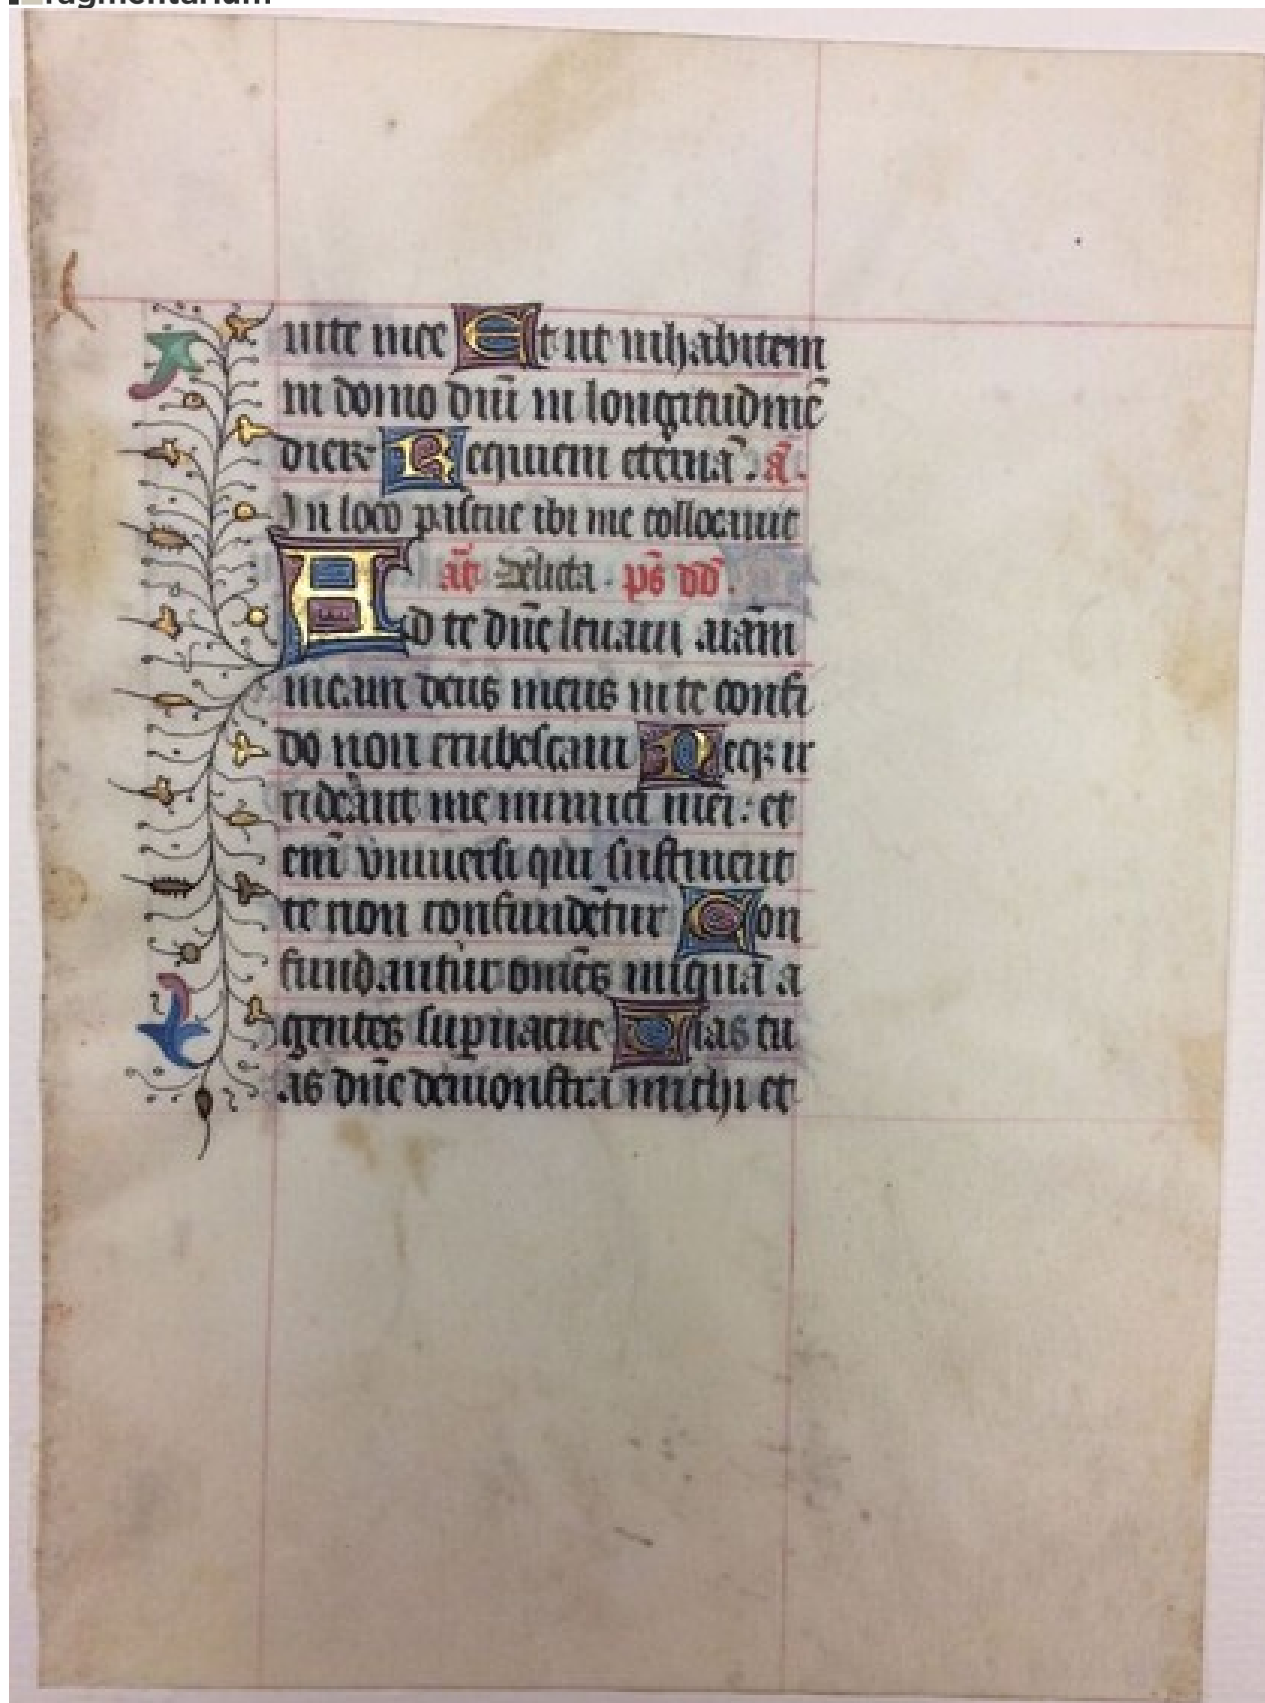 ragmentarium
uite mee Et ut inhabitem
in domo dñi in longitudinē
dierꝝ Requiem eternā. ā.
In loco pascue ibi me collocauit
añ Delicta. ps̄ dd̄.
Ad te dñe leuaui aīam
meam deus meus in te confi
do non erubescam Neqꝫ ir
rideant me inimici mei: et
enī vniuersi qui sustinent
te non confundētur Con
fundantur omēs iniqua a
gentes supuacue Uias tu
as dñe demonstra michi et